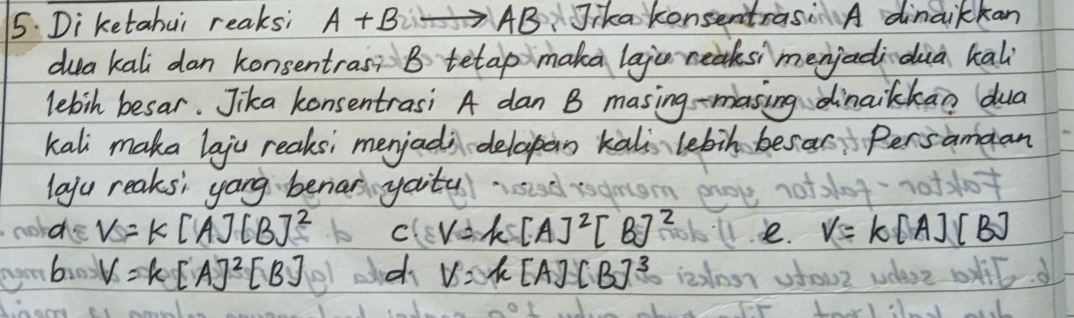 5. Diketahui reaksi A + B → AB. Jika konsentrasi A dinaikkan
dua kali dan konsentrasi B tetap maka laju reaksi menjadi dua kali
lebih besar. Jika konsentrasi A dan B masing-masing dinaikkan dua
kali maka laju reaksi menjadi delapan kali lebih besar. Persamaan
laju reaksi yang benar yaitu
a. V = k [A][B]² c. V = k [A]²[B]² e. V = k[A][B]
b. V = k [A]²[B] d. V = k [A][B]³